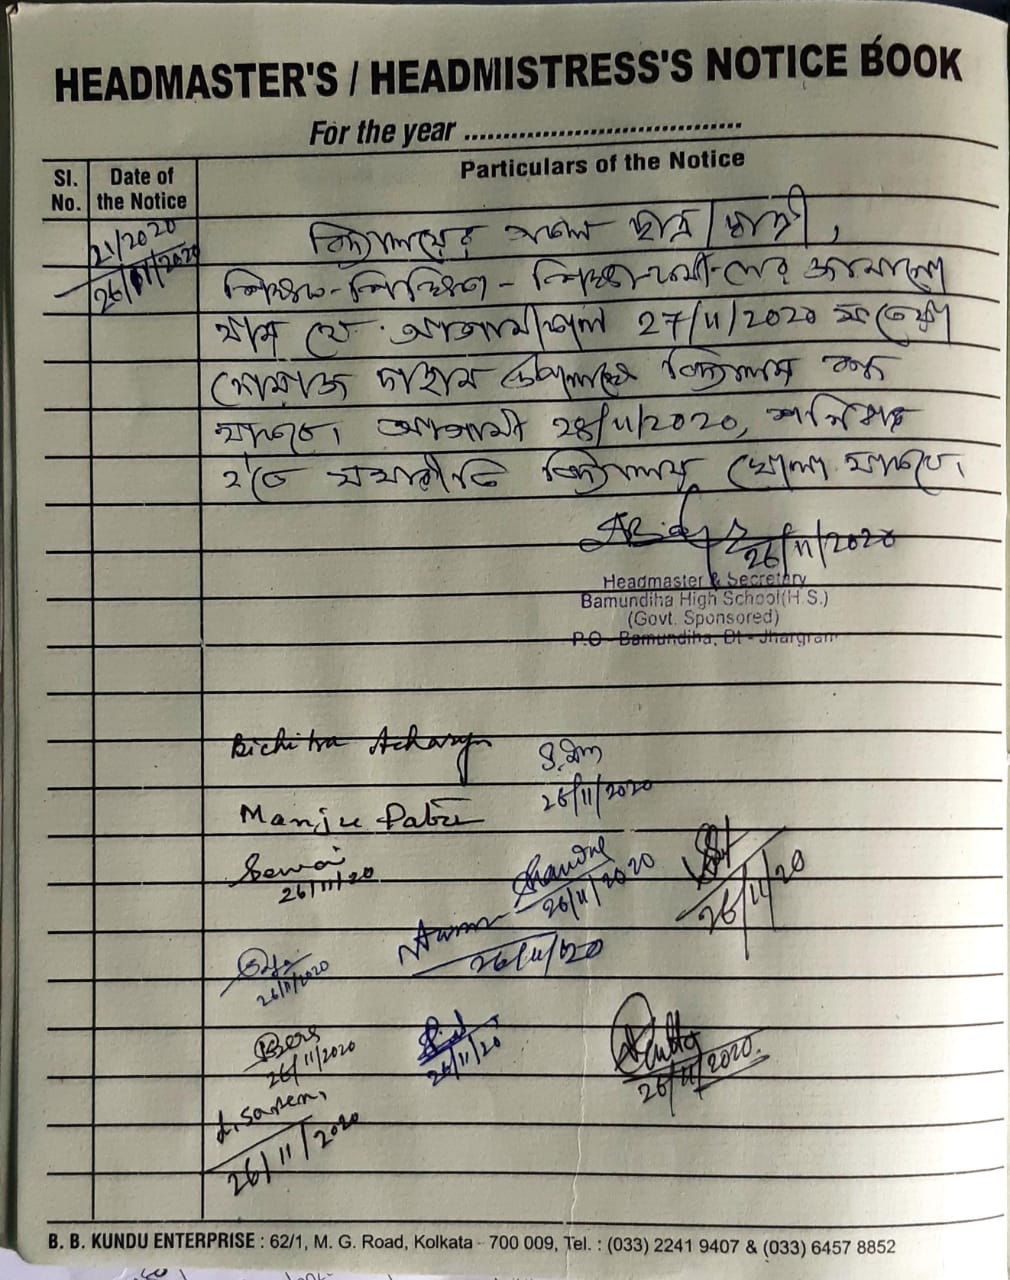 HEADMASTER'S / HEADMISTRESS'S NOTICE BOOK
For the year ....................................
Sl. No.
Date of the Notice
Particulars of the Notice
21/2020
26/11/2020
বিদ্যালয়ের সকল ছাত্র/ছাত্রী,
শিক্ষক-শিক্ষিকা-শিক্ষাকর্মী-দের জানানো
যায় যে আগামীকাল 27/11/2020
বিদ্যালয় বন্ধ
থাকবে। আগামী 28/11/2020, শনিবার
হ'তে যথারীতি বিদ্যালয় খোলা থাকবে।
26/11/2020
Headmaster & Secretary
Bamundiha High School(H.S.)
(Govt. Sponsored)
P.O - Bamundiha, Dt - Jhargram
Bichitra Acharya
26/11/2020
Manju Patra
26/11/20
26/11/2020
26/11/20
26/11/20
26/11/2020
26/11/2020
26/11/20
Dutta
26/11/2020.
L. Saren,
26/11/2020
B. B. KUNDU ENTERPRISE : 62/1, M. G. Road, Kolkata - 700 009, Tel. : (033) 2241 9407 & (033) 6457 8852